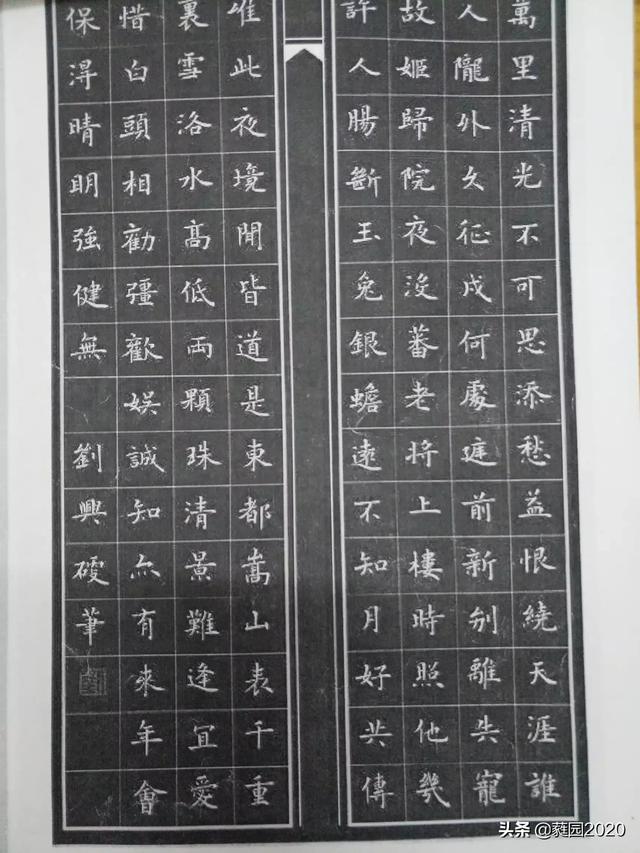 萬里清光不可思添愁益恨繞天涯誰
人隴外久征戍何處庭前新别離失寵
故姬歸院夜沒蕃老將上樓時照他幾
許人腸斷玉兔銀蟾遠不知月好共傳
唯此夜境聞皆道是東都嵩山表千重
裏雪洛水高低兩顆珠清景難逢宜愛
惜白頭相勸彊歡娛誠知亦有來年會
保淂晴明強健無 劉興筆
头条 @蕤园2020